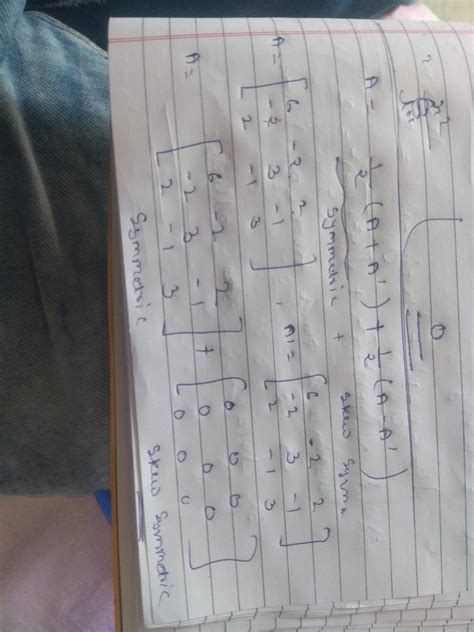 0
A = 1/2 (A + A') + 1/2 (A - A')
Symmetric + Skew Symm
A = [ 6 -2 2
-2 3 -1
2 -1 3 ] , A' = [ 6 -2 2
-2 3 -1
2 -1 3 ]
A = [ 6 -2 2
-2 3 -1
2 -1 3 ] + [ 0 0 0
0 0 0
0 0 0 ]
Symmetric Skew Symmetric